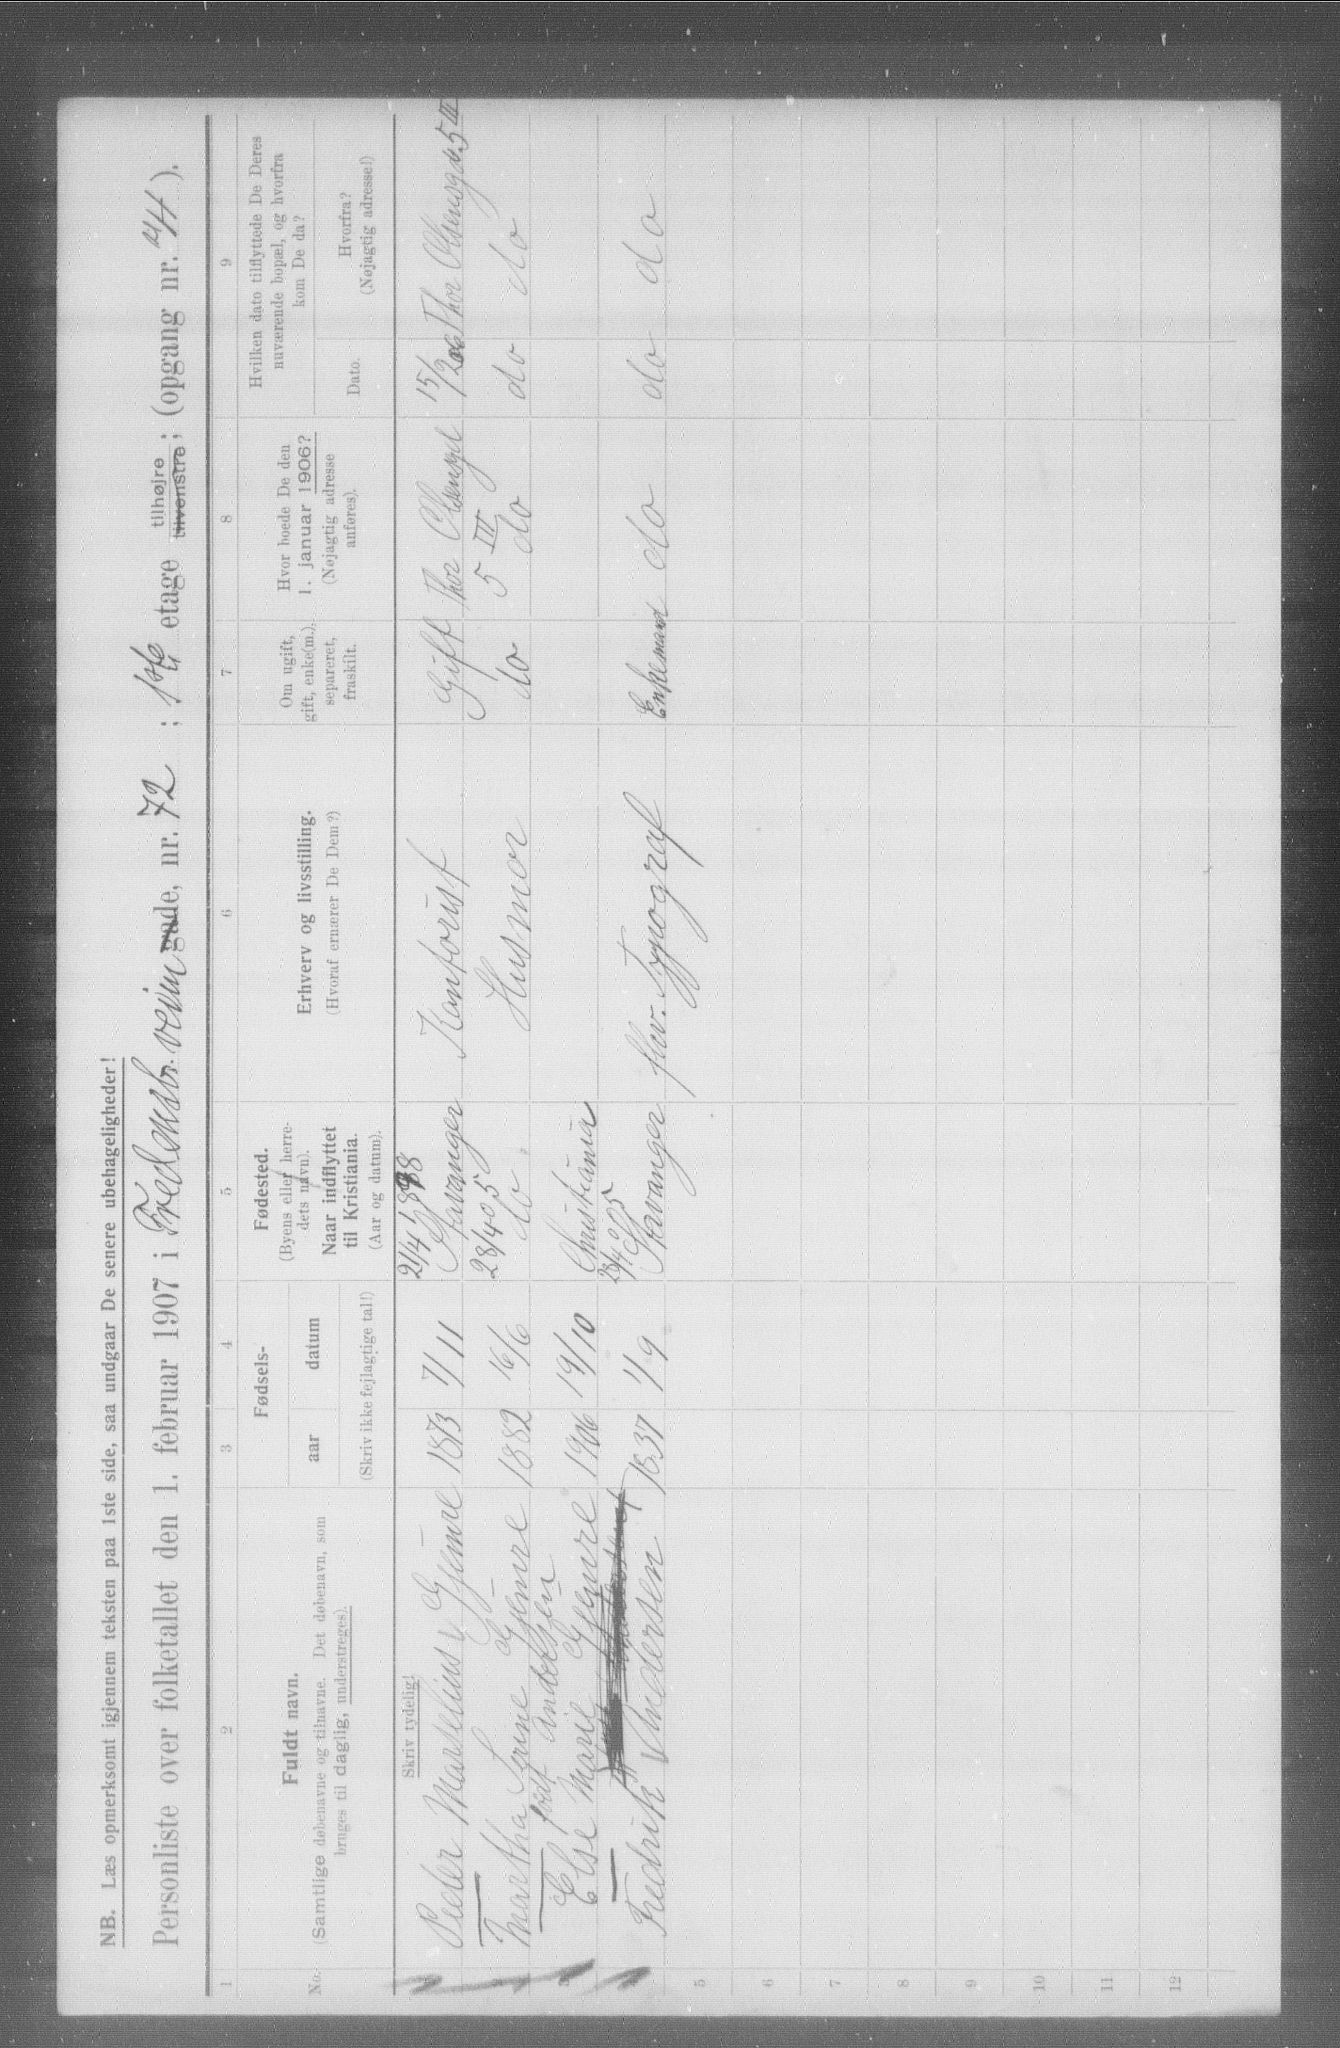 NB. Læs opmerksomt igjennem teksten paa 1ste side, saa undgaar De senere ubehageligheder!
Personliste over folketallet den 1. februar 1907 i Fredensb. veien gade, nr. 72 ; 1ste etage tilhøjre tilvenstre; (opgang nr. ).
1 2 3 4 5 6 7 8 9
No.
Fuldt navn.
(Samtlige døbenavne og tilnavne. Det døbenavn, som
bruges til daglig, understreges).
Skriv tydelig!
Fødsels-
aar datum
(Skriv ikke fejlagtige tal!)
Fødested.
(Byens eller herre-
dets navn).
Naar indflyttet
til Kristiania.
(Aar og datum).
Erhverv og livsstilling.
(Hvoraf ernærer De Dem?)
Om ugift,
gift, enke(m.),
separeret,
fraskilt.
Hvor boede De den
1. januar 1906?
(Nøjagtig adresse
anføres).
Hvilken dato tilflyttede De Deres
nuværende bopæl, og hvorfra
kom De da?
Dato.
Hvorfra?
(Nøjagtig adresse!)
1 Peder Marselius Gjemre 1873 7/11 21/4 1898 Stavanger Kontorist Gift Thor Olsensgd 5 III 15/2 06 Thor Olsensgd. 5 III
2 Martha Gjemre født Andersen 1882 16/6 28/4 05 do. Husmor do do do do
3 Else Marie Gjemre 1906 19/10 Christiania
4 Fredrik Andersen 1837 1/9 28/4 05 Stavanger fhv. Typograf Enkemand do do do
5
6
7
8
9
10
11
12